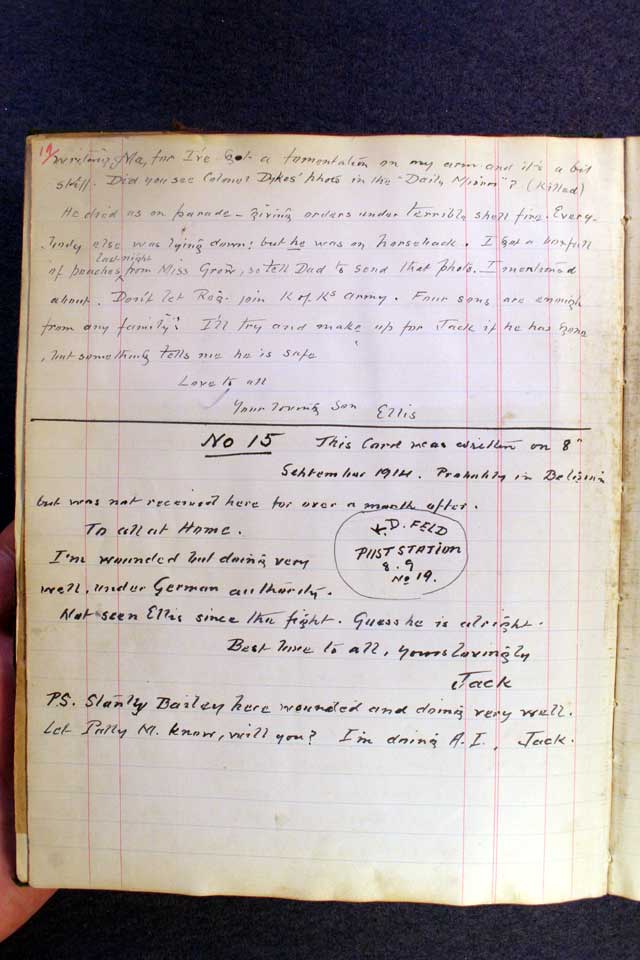 19/
writing, Ma, for I've Got a fomentation on my arm and it's a bit
stiff. Did you see Colonel Dykes' photo in the "Daily Mirror"? (Killed)
He died as on parade - giving orders under terrible shell fire. Every-
body else was lying down: but he was on horseback. I got a boxfull
last night
of peaches from Miss Grow, so tell Dad to send that photo. I mentioned
about. Don't let Reg. join K of K's army. Four sons are enough
from any family! I'll try and make up for Jack if he has gone
, but something tells me he is safe
Love to all
Your loving Son Ellis
No 15 This Card was written on 8"
September 1914. Probably in Belgium
but was not received here for over a month after.
To all at Home.
K.D. FELD
POSTSTATION
8.9
No 19.
I'm wounded but doing very
well, under German authority.
Not seen Ellis since the fight. Guess he is alright.
Best love to all, yours lovingly
Jack
P.S. Stanley Bailey here wounded and doing very well.
Let Polly M. know, will you? I'm doing A.I., Jack.